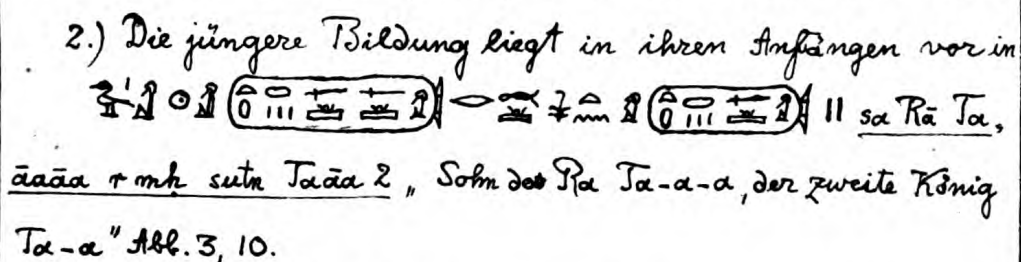 2.) Die jüngere Bildung liegt in ihren Anfängen vor in
II sa Rā Ta,
āaāa r mh sutn Taāa 2 „ Sohn des Ra Ta-a-a, der zweite König
Ta-a" Abb. 3, 10.